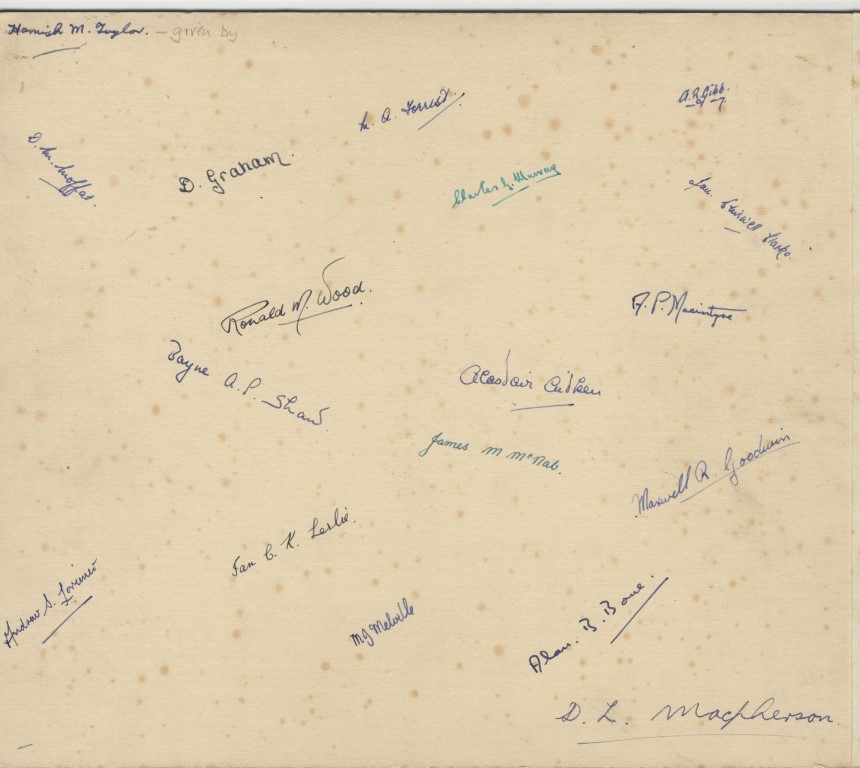 Hamish M. Taylor. – given by
M. A. Forrest.
A.R. Gibb.
D. M. Moffat.
D. Graham.
Charles G. Murray
Ian Stirling
Ronald M. Wood.
A. P. Macintyre
Bayne A. P. Shaw.
Alasdair Aitken
James M McNab.
Maxwell R. Goodwin
Ian C. K. Leslie.
Andrew S. Lorimer
MJ Melville
Alan. B. Bone.
D. L. Macpherson.